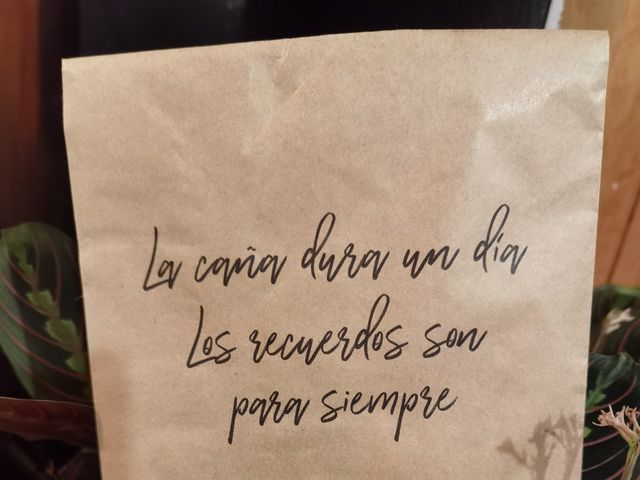 La caña dura un día
Los recuerdos son
para siempre